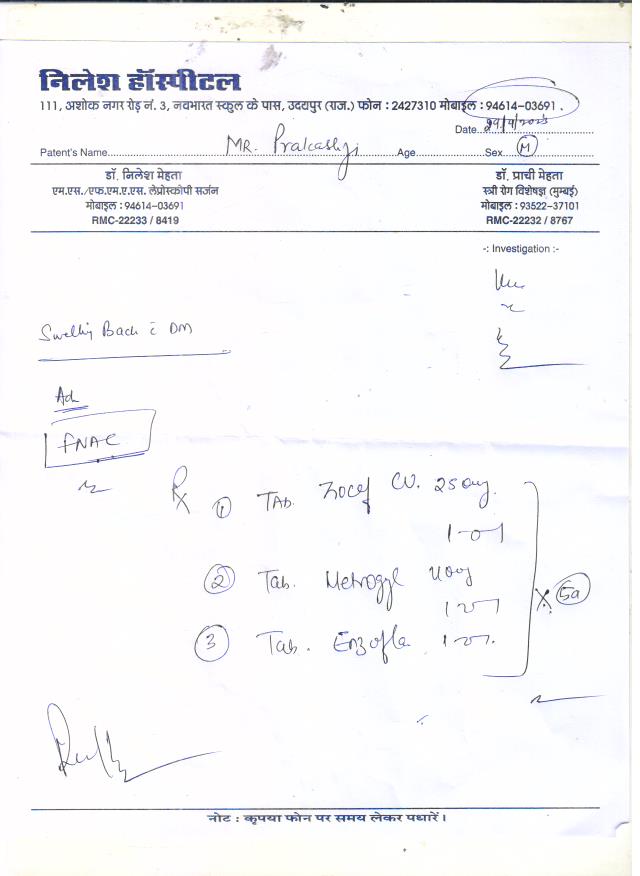 निलेश हॉस्पीटल
111, अशोक नगर रोड़ नं. 3, नवभारत स्कूल के पास, उदयपुर (राज.) फोन : 2427310 मोबाईल : 94614-03691 .
Date
Patent's Name MR. Prakashji Age Sex M
डॉ. निलेश मेहता
एम.एस./एफ.एम.ए.एस. लेप्रोस्कोपी सर्जन
मोबाईल : 94614-03691
RMC-22233 / 8419
डॉ. प्राची मेहता
स्त्री रोग विशेषज्ञ (मुम्बई)
मोबाईल : 93522-37101
RMC-22232 / 8767
-: Investigation :-
Swelling Back c̄ DM
Adv
FNAC
Rx 1 TAB. Zocef CV. 250mg
1-0-1
2 Tab. Metrogyl 400mg
1-0-1
3 Tab. Enzofla 1-0-1
x 5d
नोट : कृपया फोन पर समय लेकर पधारें।